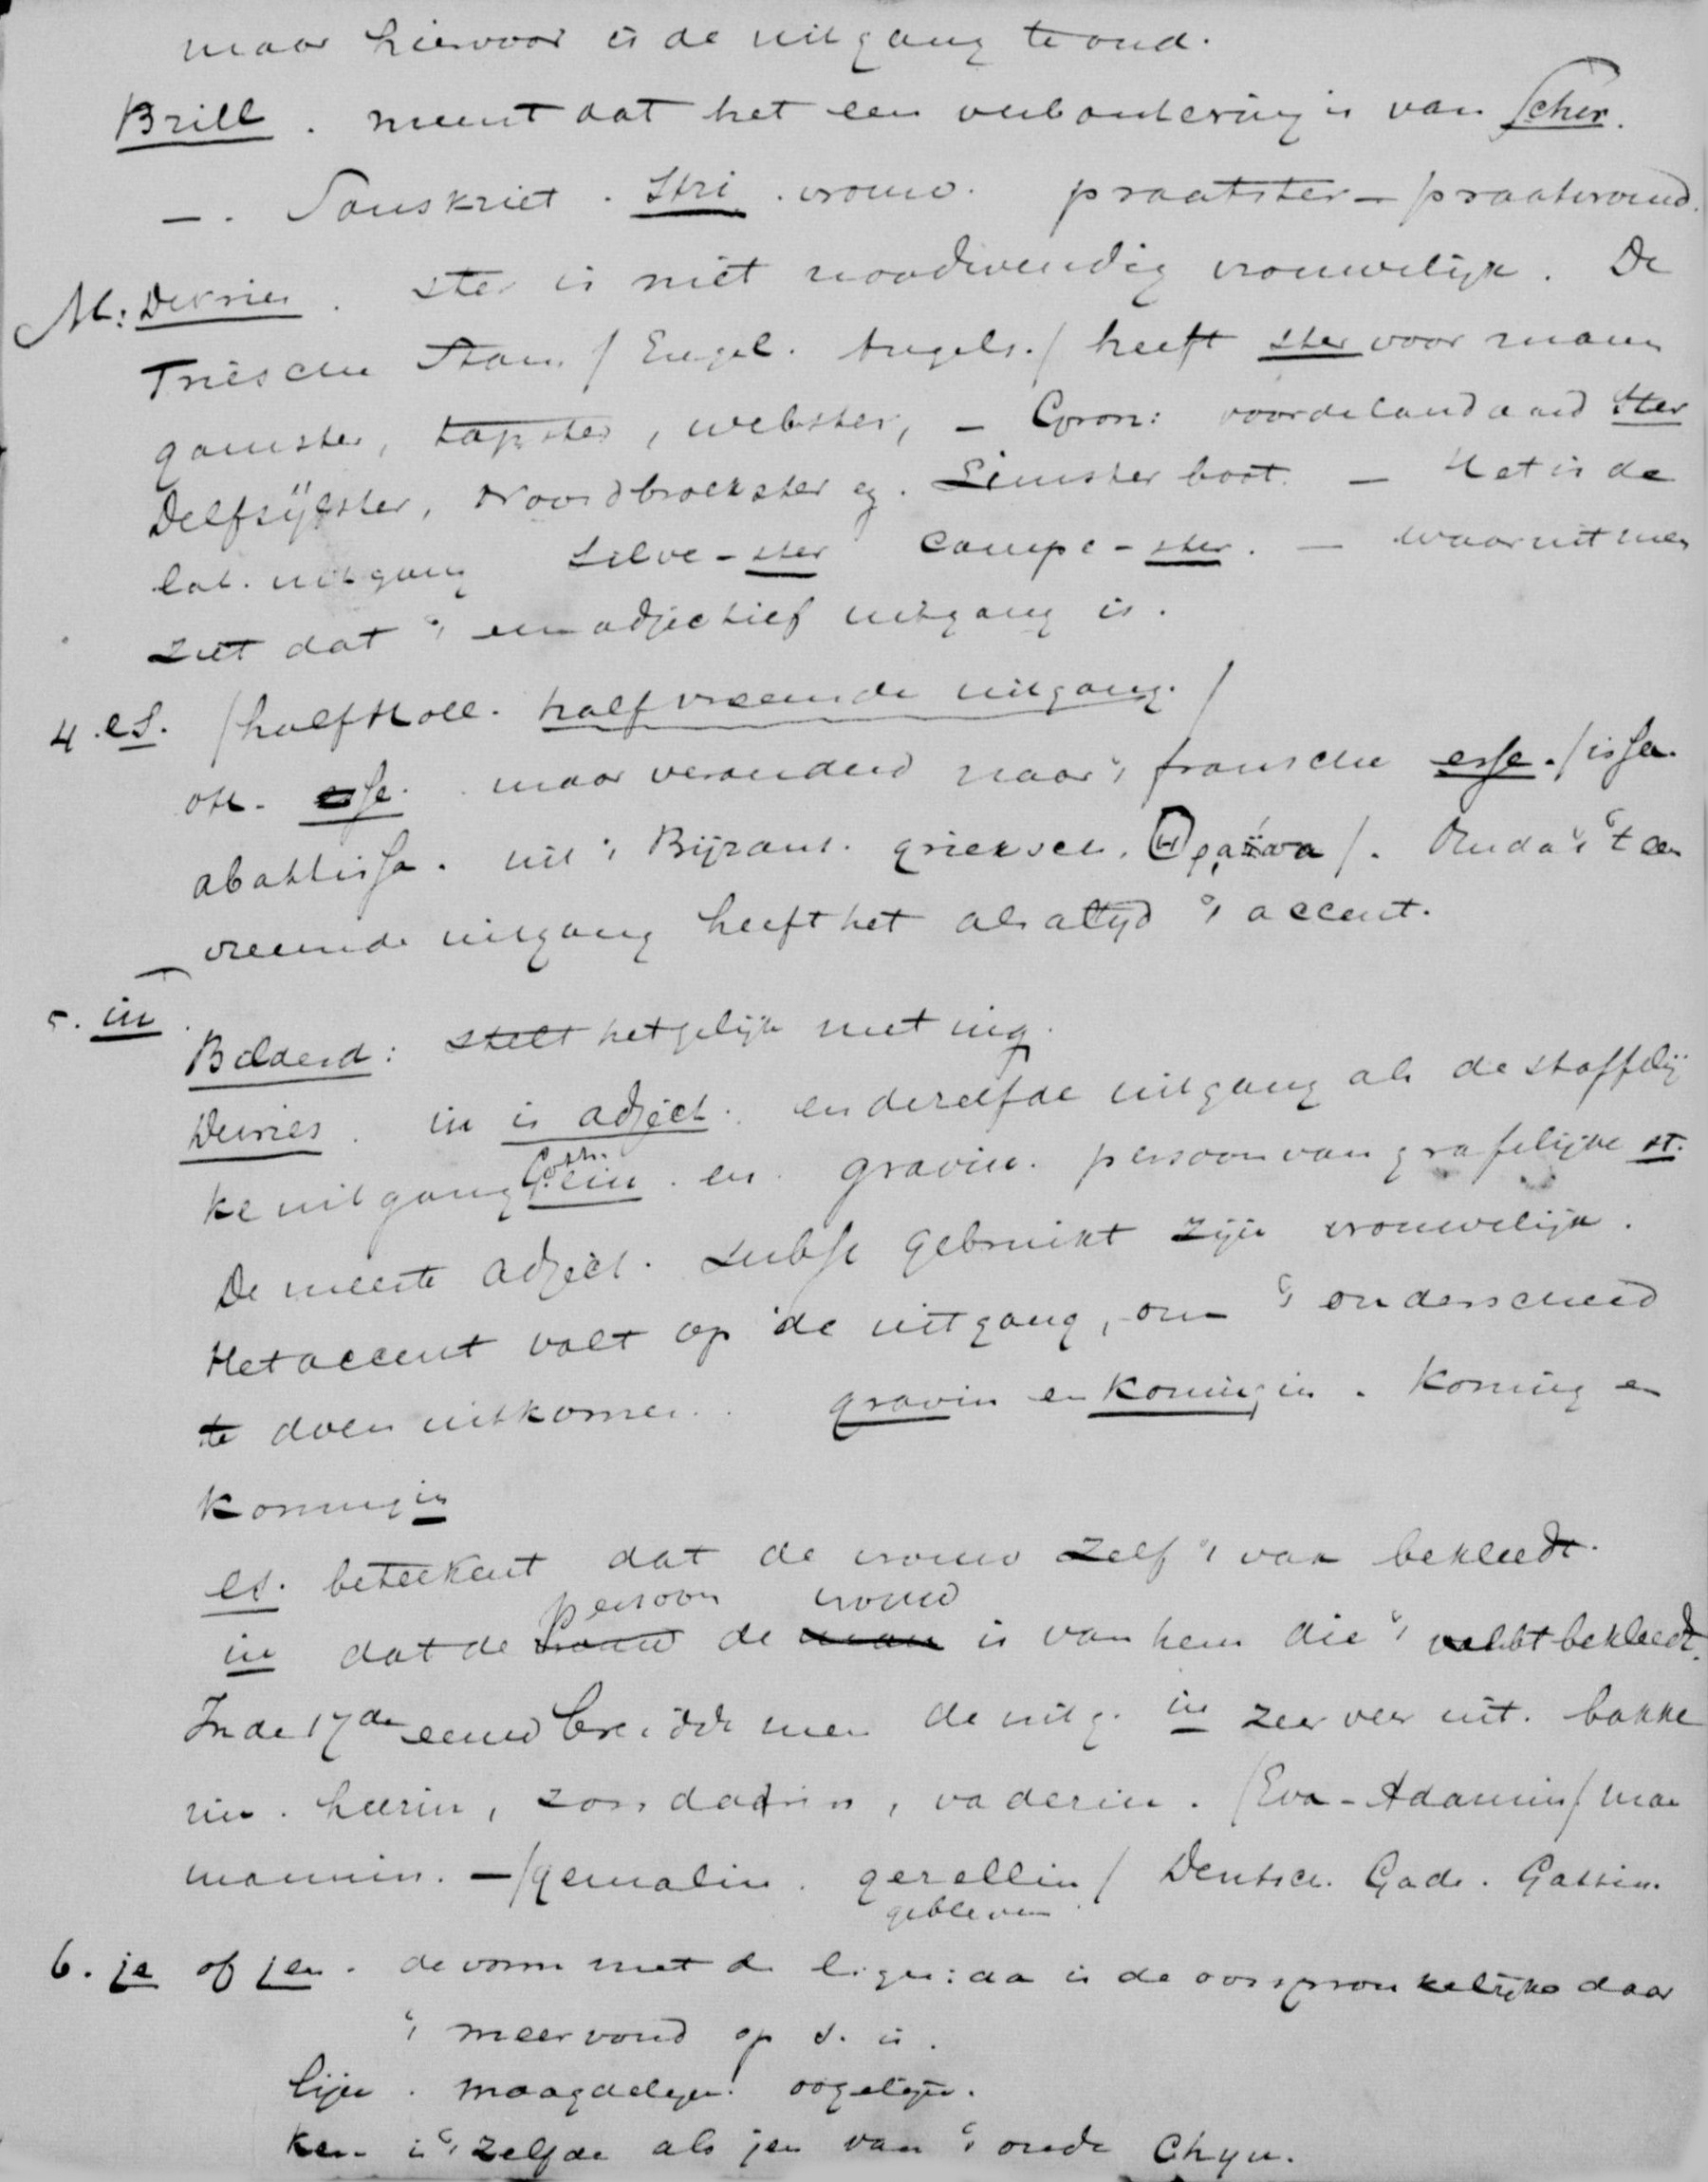 maar hiervoor is de uitgang te oud.
Brill. meent dat het een verbastering is van scher.
—. Sanskriet. Stri. vrouw. praatster — praatvrouw.
M: De Vries. ster is niet noodwendig vrouwelijk. De
Friesche Stam / Engel. Angels. / heeft ster voor mann
gamster, tapster, webster, — Gron: voor de landaard ster
Delfzijlster, Noordbroekster ez. Eemster boot. — Het is de
lat. uitgang silve-ster campe-ster. — waaruit men
ziet dat 't een adjectief uitgang is.
4. es. / half Holl. half vreemde uitgang. /
oH. esse. maar veranderd naar 't fransche esse. / issa.
abattissa. uit 't Bijzant. grieksch. / . Omdat 't een
vreemde uitgang heeft het als altijd 't accent.
5. in.
Bilderd: stelt het gelijk met ing.
De Vries. in is adject. en dezelfde uitgang als de stoffelij
ke uitgang Goth. ein. en gravin. persoon van grafelijke st.
De meeste adject. subst gebruikt zijn vrouwelijk.
Het accent valt op de uitgang, om 't onderscheid
te doen uitkomen. gravin en koningin. Koning en
Koningin
es. beteekent dat de vrouw zelf 't vak bekleedt.
persoon vrouw
in dat de vrouw de man is van hem die 't bekleedt.
In de 17de eeuw breidde men de uitg. in zeer ver uit. bakke
rin. heerin, zondarin, vaderin. / Eva - Adamin / man
mannin. — / gemalin. gezellin / Deutsch. Gade. Gattin.
gebleven
6. je of jen. de vorm met de is de oorspronkelijke daar
't meervoud op s. is.
lijn. maagdelijn. oogelijn.
Ken is 't zelfde als jen van 't oude Chyn.